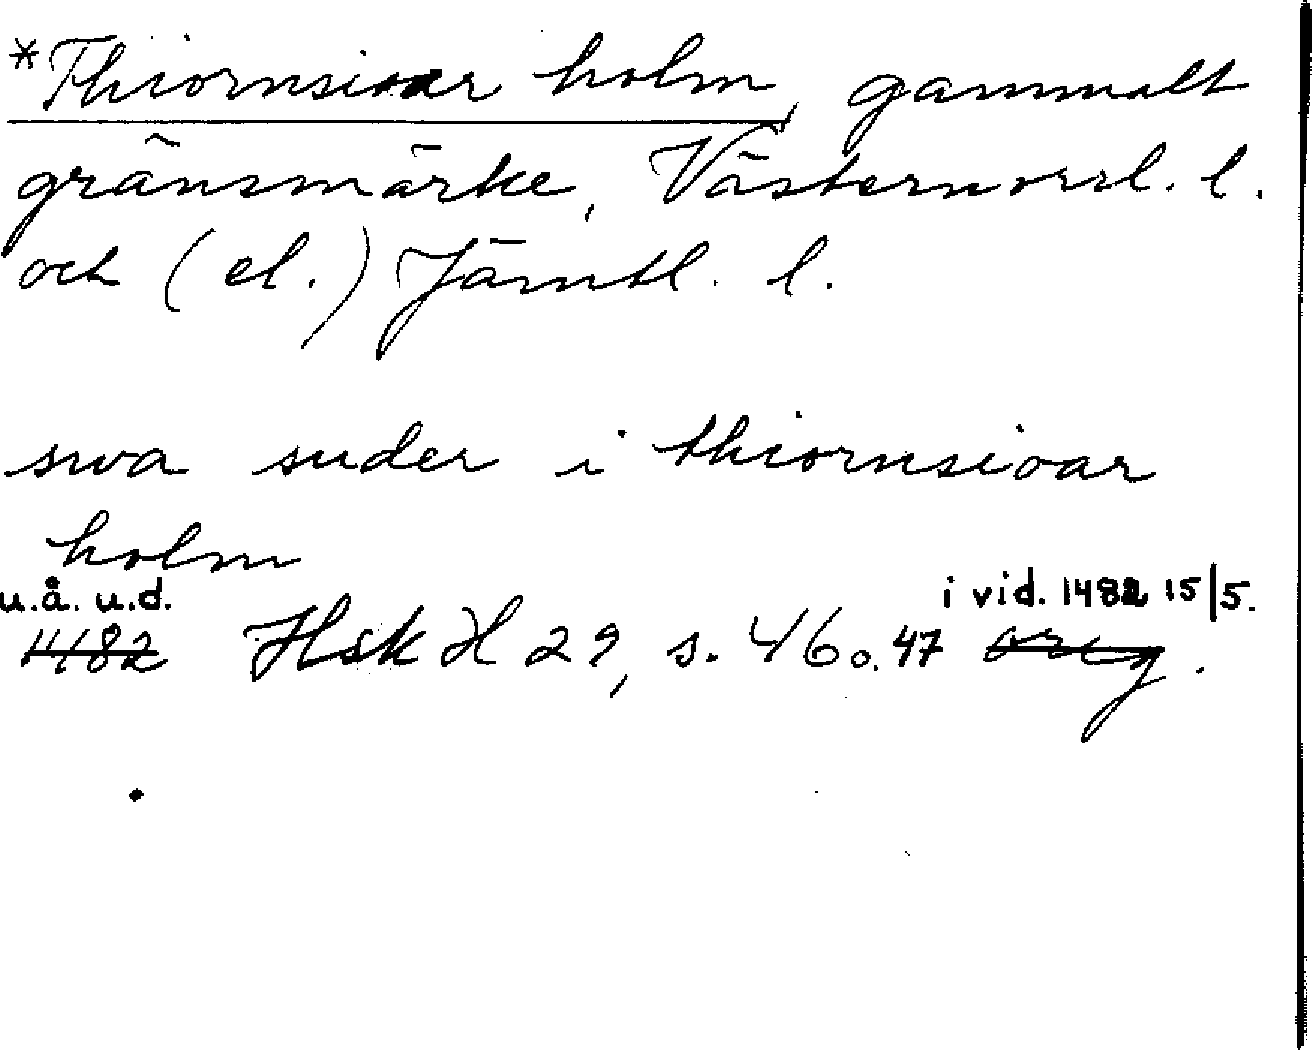 *Thiornsioar holm, gammalt
gränsmärke, Västernorrl. l.
och (el.) Jämtl. l.
swa suder i thiornsioar
holm
u.å. u.d. i vid. 1482 15/5.
1482 Hsk H 29, s. 46 o. 47 orig.